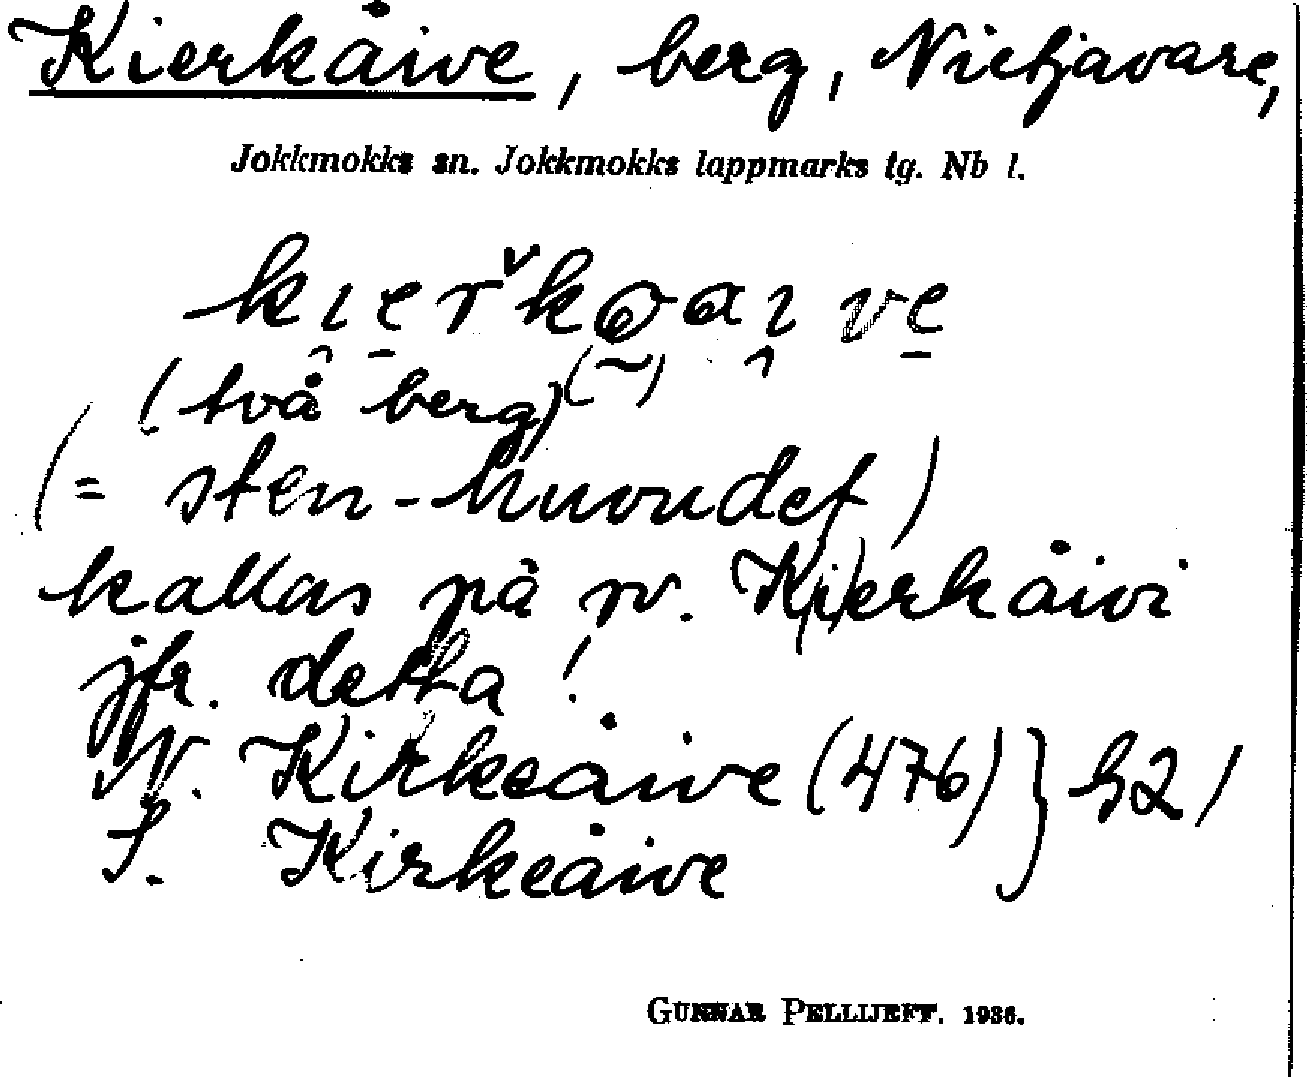 Kierkåive, berg, Nietjavare,
Jokkmokks sn. Jokkmokks lappmarks tg. Nb l.
(två berg)
(= sten-huvudet)
kallas på sv. K(i)erkåivi
jfr. detta!
N. Kirkeåive (476) } 52)
S. Kirkeåive
GUNNAR PELLIJEFF. 1936.